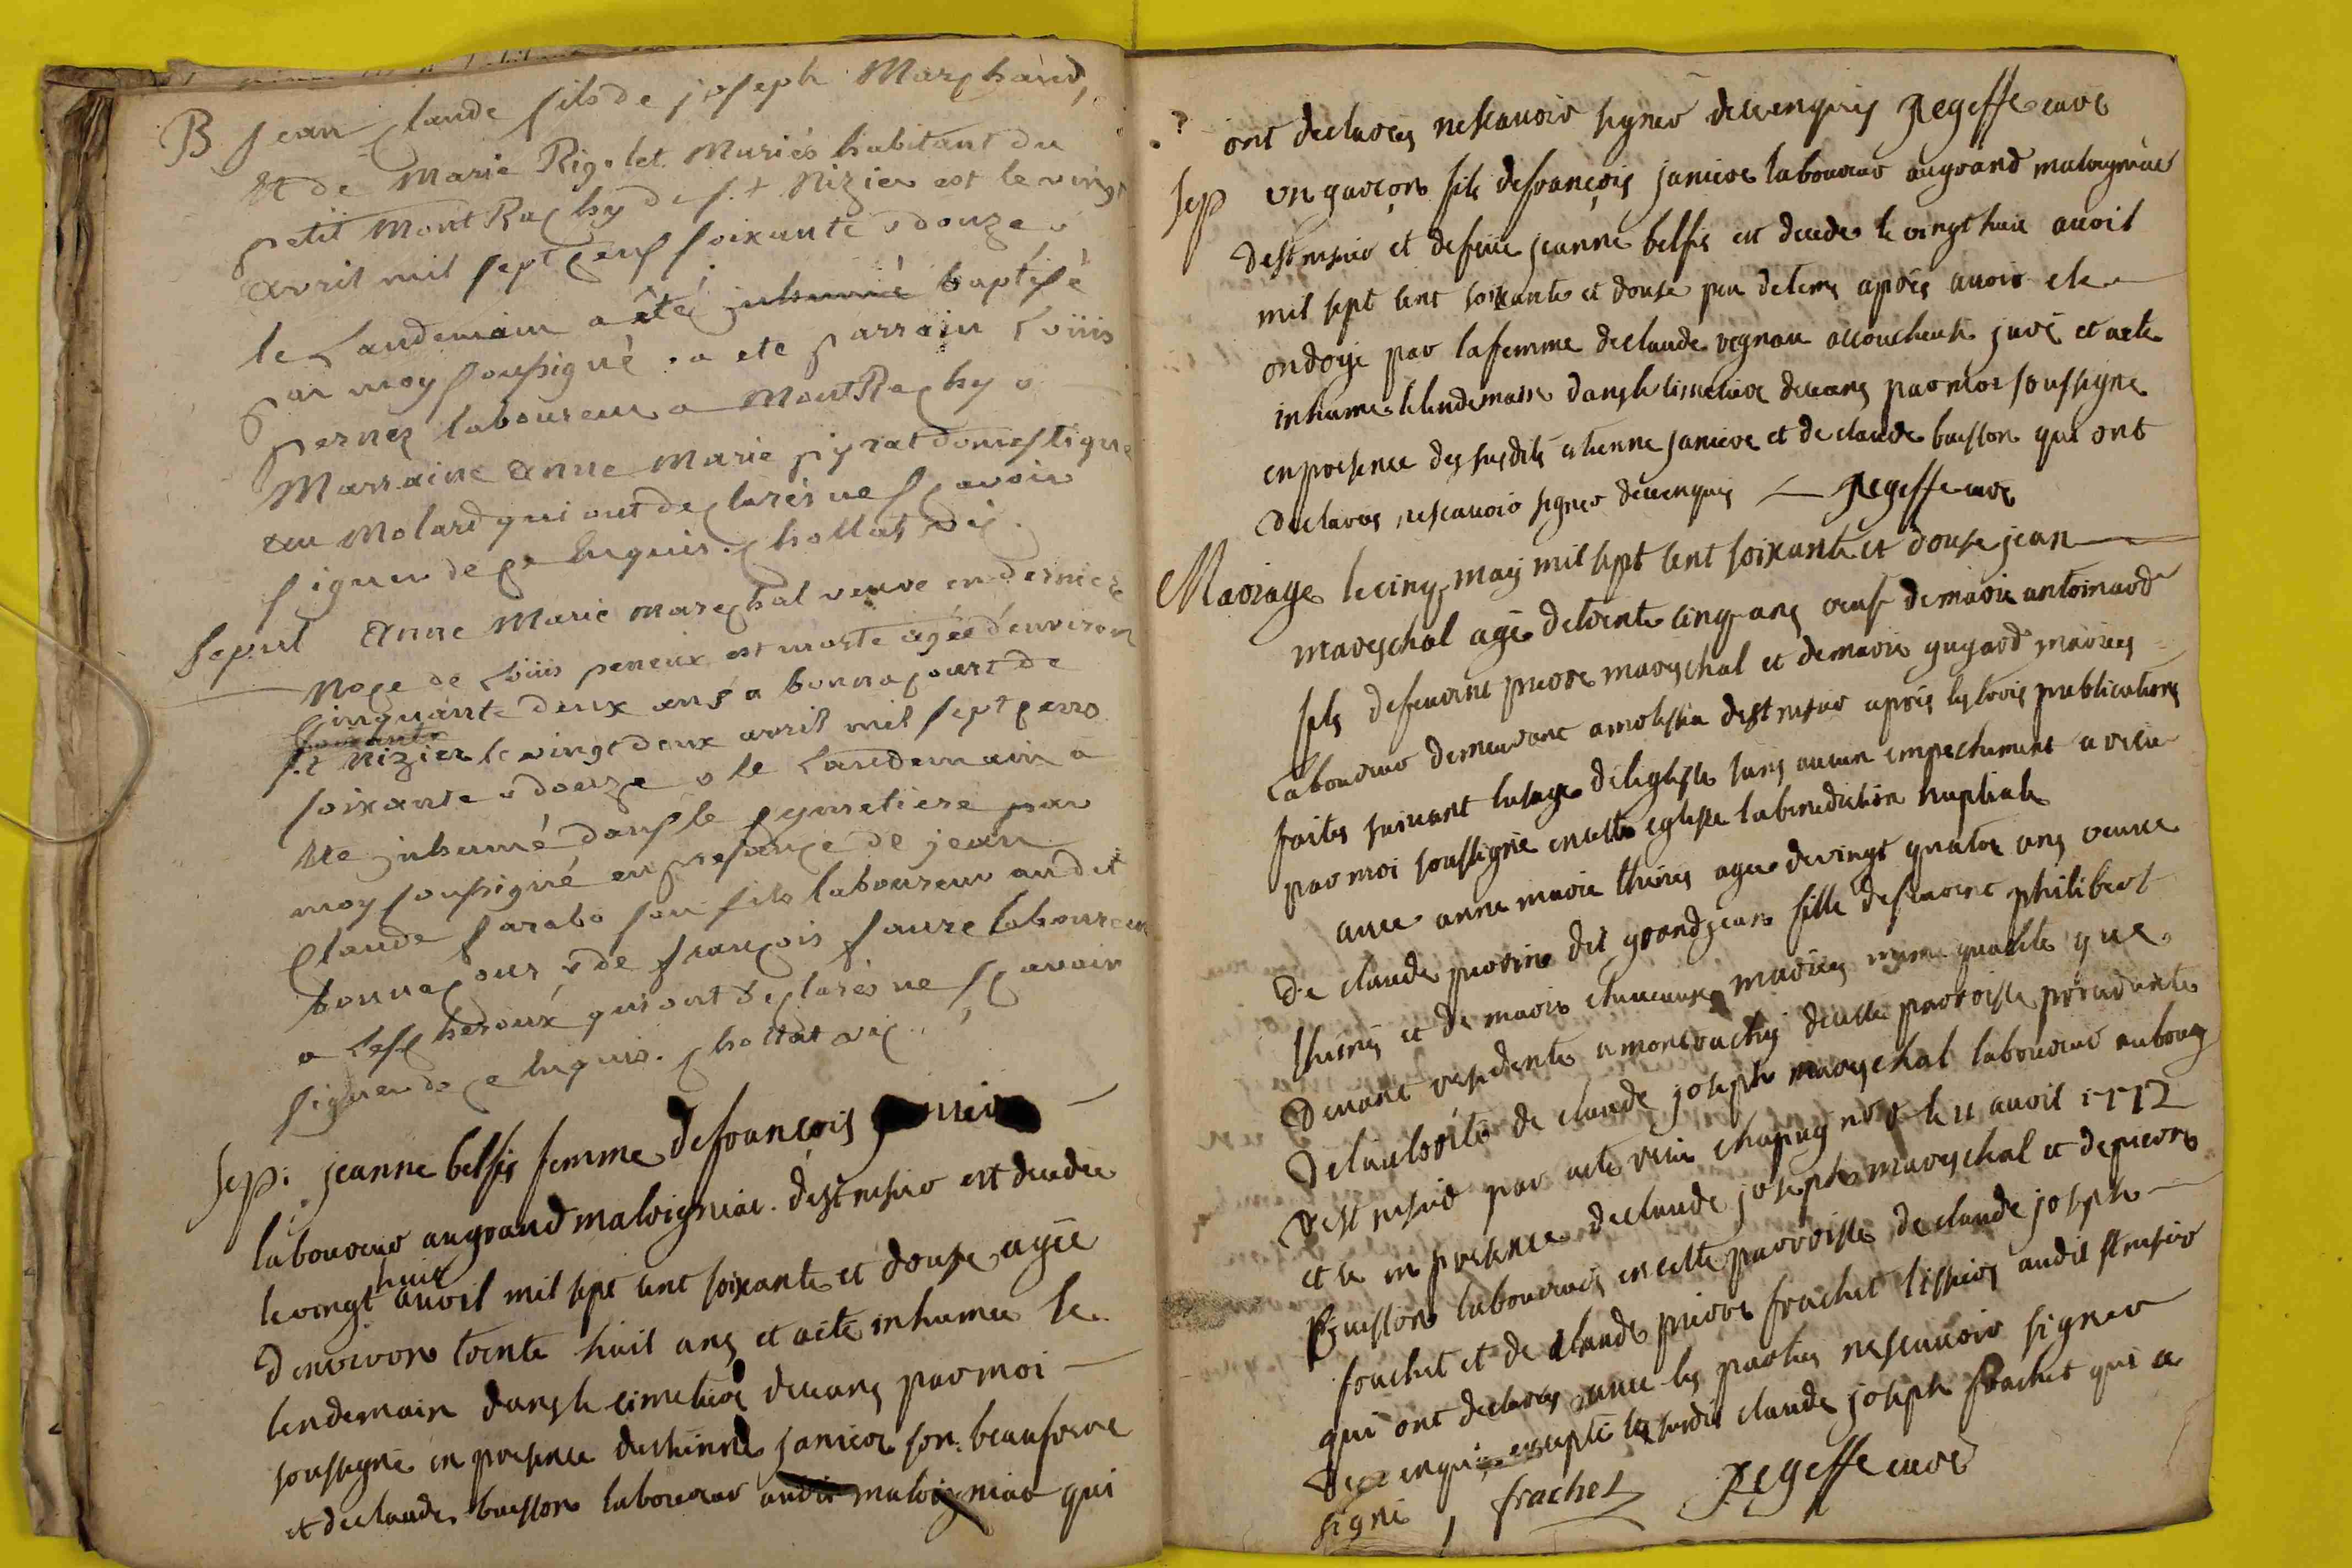 B Jean Claude fils de joseph Marchand,
et de Marie Rigolet Mariés habitant du
petit MontRachy de s.t Nizier est le vingt
avril mil sept cens soixante & douze &
le Landemain a été inhumé baptisé
par moy soussigné . a ete parrain Loüis
pernez laboureur a MontRachy &
Marraine anne Marie pyrat domestique
au Molard qui ont declarés ne scavoir
signer de ce enquis. chollat vic.
Sepul Anne Marie Mareschal veuve en dernier
Noce de Loüis peneux est morte agée d'environ
Cinquante deux ans a bonnacourt de
soixante
s.t Nizier le vingt deux avril mil sept cens
soixante & douze & le Landemain a
ete inhumé dans le cymetiere par
moy soussigné en presance de jean
Claude farabo son fils laboureur au dit
bonnacour & de françois faure laboureur
a Lescheroux qui ont declarés ne scavoir
signer de ce enquis. chollat vic.
Sep: jeanne belfis femme de françois
laboureur au grand malvigniac. de st nisier est decedée
huit
le vingt avril mil sept cent soixante et douse agée
d'environ trente huit ans et a ete inhumée le
lendemain dans le cimetiere ceans par moi
soussigné en presence d'estienne janiere son beaufrere
et de claude buisson laboureur audit malvigniac qui
ont declarés ne scavoir signer de ce enquis Regeffe curé
Sep un garçon fils de françois janiere laboureur au grand malvigniac
de st nisier et de feüe jeanne belfis est decede le vingt huit avril
mil sept cent soixante et douse peu de tems après avoir ete
ondoyé par la femme de claude vegnau accoucheuse juré et a ete
inhume le lendemain dans le cimetiere ceans par moi soussigne
en presence des susdits etienne janiere et de claude buisson qui ont
declarés ne scavoir signer de ce enquis Regeffe curé
Mariage le cinq may mil sept cent soixante et douse jean
mareschal agé de trente cinq ans veuf de marie antoinard
fils de feu pierre mareschal et de marie guyard mariés
laboureur demeurant a molissia de st nisier après les trois publications
faites suivant l'usage de l'eglise sans aucun empechement a recu
par moi soussigné en cette eglise la benediction nuptiale
avec anne marie theves agée de vingt quatre ans veuve
de claude perrin dit grandjean fille de feu philibert
theves et de marie mariés meme qualité que
devant residente a montrachy de cette parroisse procedante
de l'autorité de claude joseph mareschal laboureur au bourg
de st nisier par acte recu chapuy le 11 avril 1772
et ce en presence de claude joseph mareschal et de pierre
Buisson laboureurs en cette parroisse de claude joseph
frachet et de claude pierre frachet tissiers audit st nisier
qui ont declarés avec les parties ne scavoir signer
de ce enquis excepté le susdit claude joseph frachet qui a
signé , frachet Regeffe curé